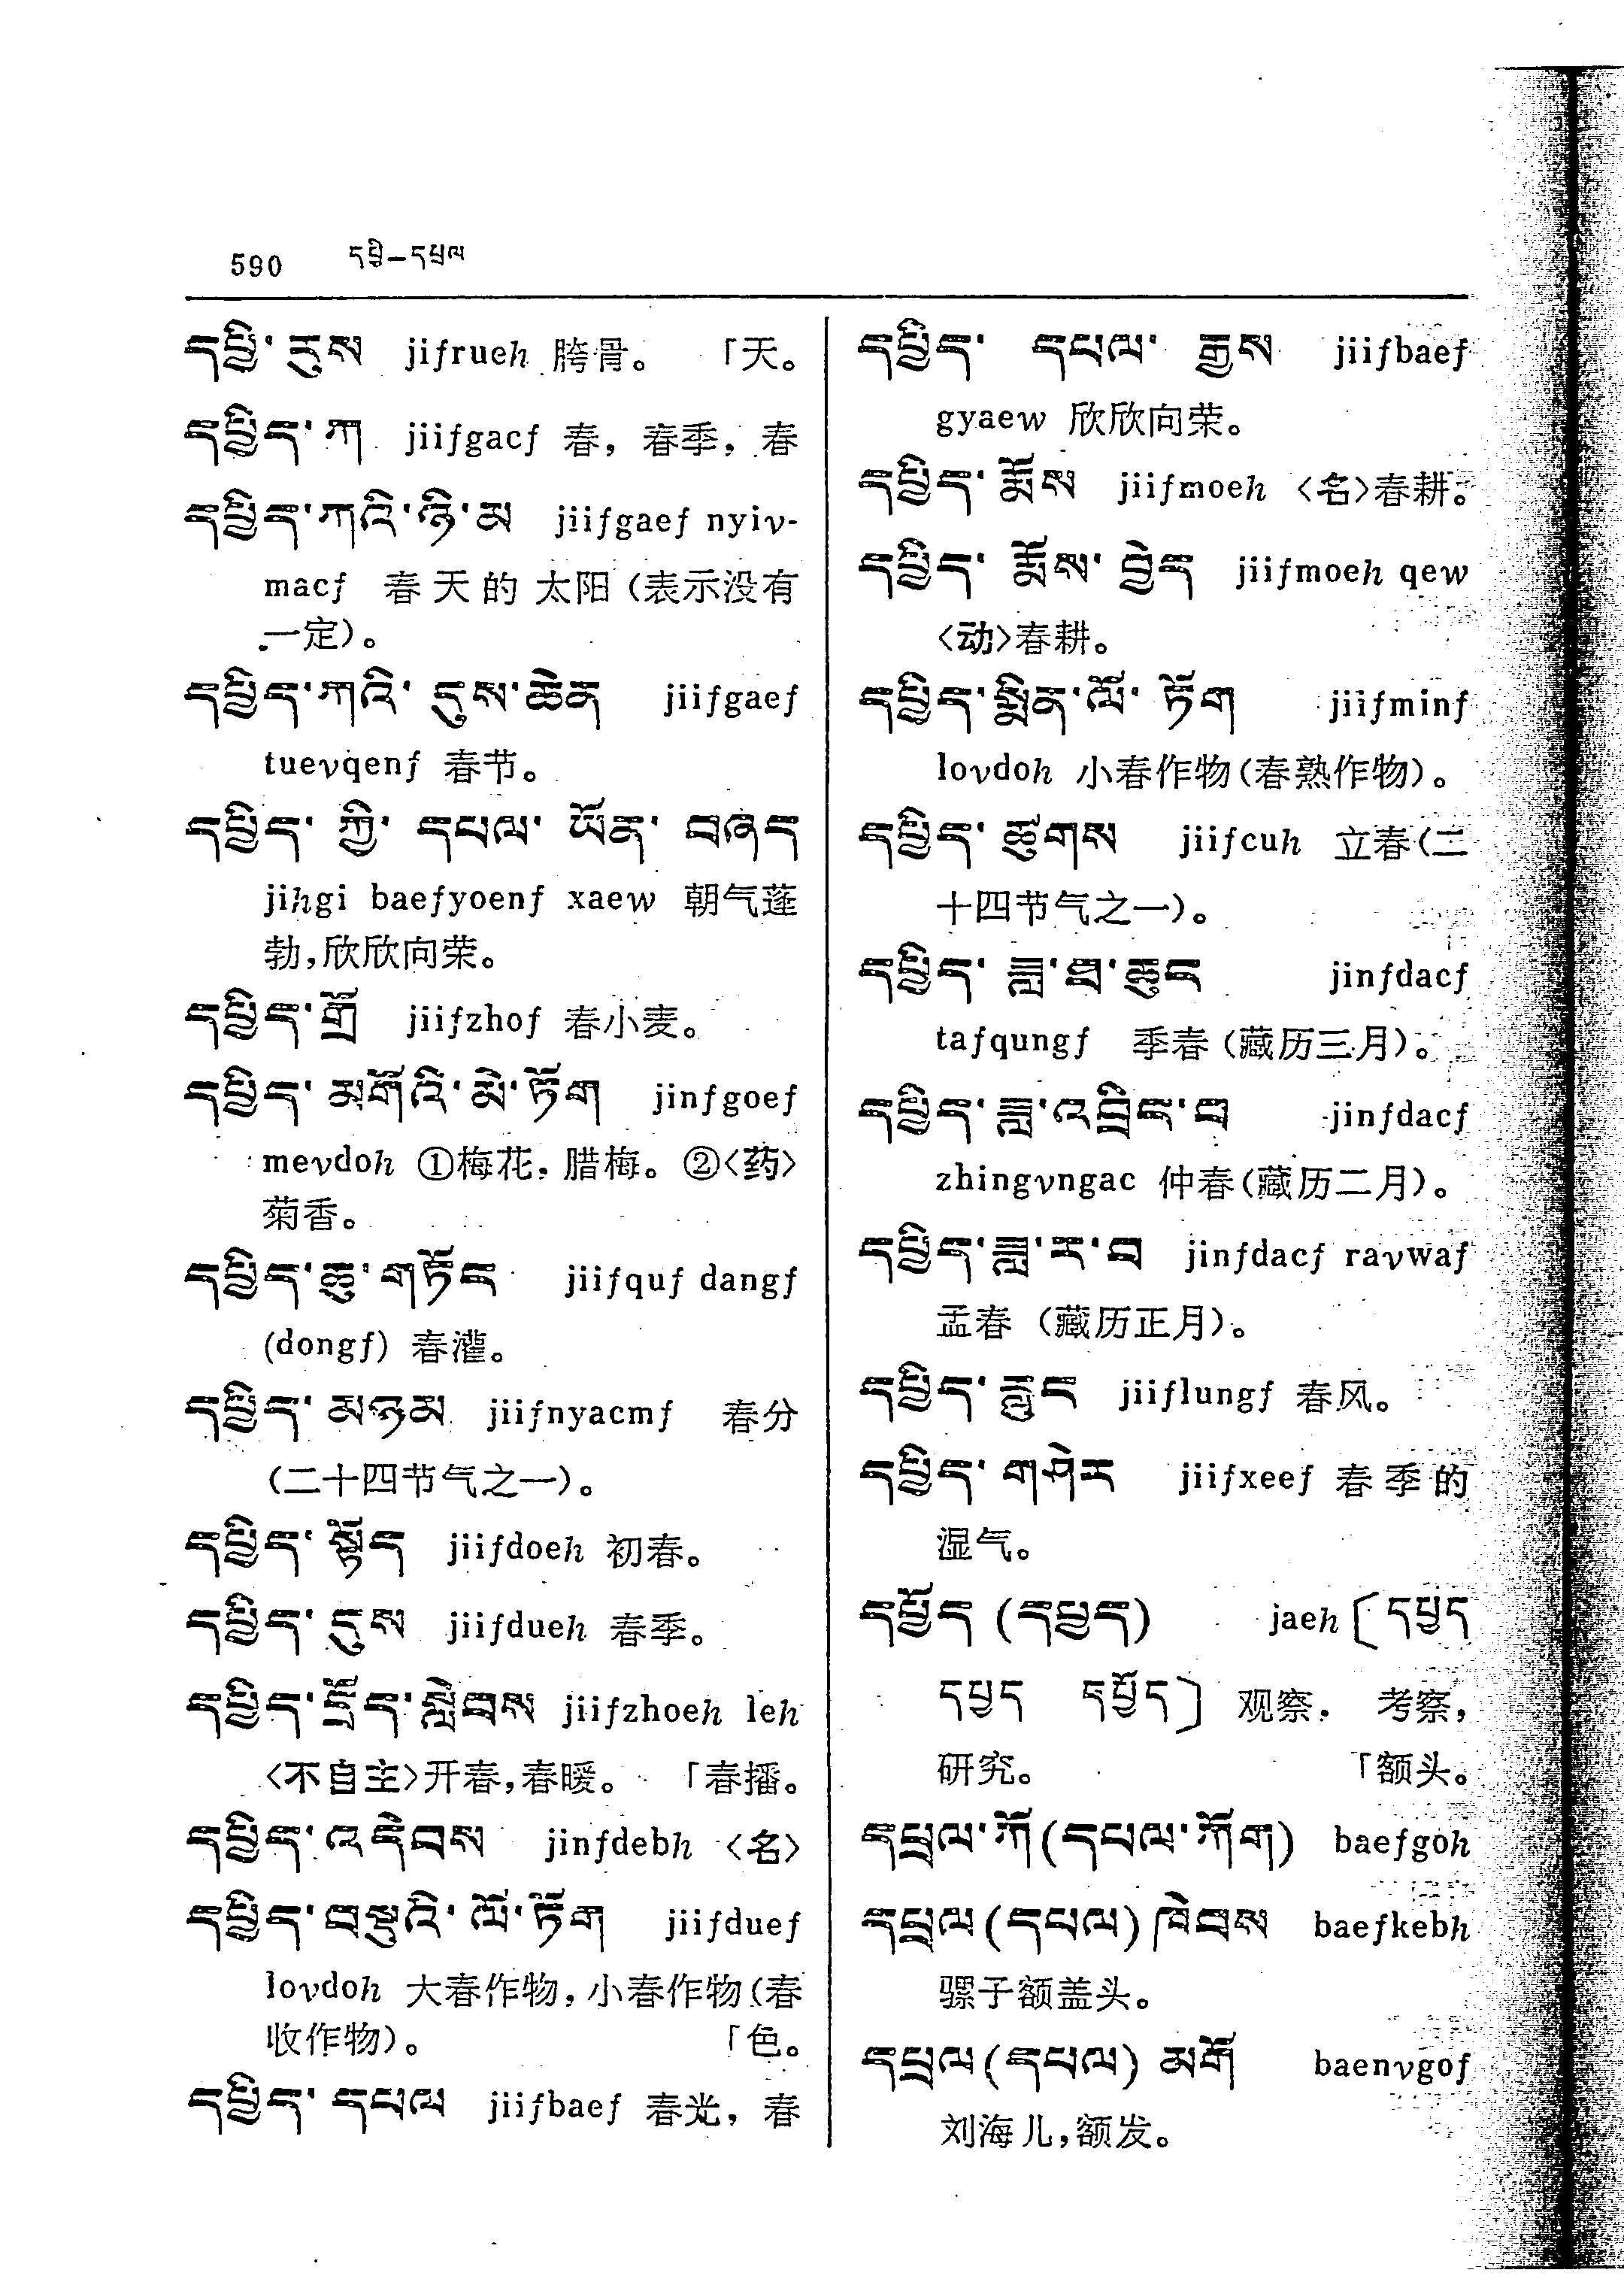 590 དཔྱི—དཔྲལ
དཔྱི་རུས jifrueh 胯骨。 「天。
དཔྱིད་ཀ jiifgacf 春，春季，春
དཔྱིད་ཀའི་ཉི་མ jiifgaef nyiv-
macf 春天的太阳（表示没有
一定）。
དཔྱིད་ཀའི་དུས་ཆེན jiifgaef
tuevqenf 春节。
དཔྱིད་ཀྱི་དཔལ་ཡོན་བཞད
jihgi baefyoenf xaew 朝气蓬
勃，欣欣向荣。
དཔྱིད་གྲོ jiifzhof 春小麦。
དཔྱིད་མགོའི་མེ་ཏོག jinfgoef
mevdoh ①梅花，腊梅。②〈药〉
菊香。
དཔྱིད་ཆུ་གཏོང jiifquf dangf
(dongf) 春灌。
དཔྱིད་མཉམ jiifnyacmf 春分
（二十四节气之一）。
དཔྱིད་སྟོད jiifdoeh 初春。
དཔྱིད་དུས jiifdueh 春季。
དཔྱིད་དྲོད་སླེབས jiifzhoeh leh
〈不自主〉开春，春暖。 「春播。
དཔྱིད་འདེབས jinfdebh 〈名〉
དཔྱིད་བསྡུའི་ལོ་ཏོག jiifduef
lovdoh 大春作物，小春作物（春
收作物）。 「色。
དཔྱིད་དཔལ jiifbaef 春光，春
དཔྱིད་དཔལ་རྒྱས jiifbaef
gyaew 欣欣向荣。
དཔྱིད་རྨོས jiifmoeh 〈名〉春耕。
དཔྱིད་རྨོས་བྱེད jiifmoeh qew
〈动〉春耕。
དཔྱིད་སྨིན་ལོ་ཏོག jiifminf
lovdoh 小春作物（春熟作物）。
དཔྱིད་ཚུགས jiifcuh 立春（二
十四节气之一）。
དཔྱིད་ཟླ་ཐ་ཆུང jinfdacf
tafqungf 季春（藏历三月）。
དཔྱིད་ཟླ་འབྲིང་བ jinfdacf
zhingvngac 仲春（藏历二月）。
དཔྱིད་ཟླ་ར་བ jinfdacf ravwaf
孟春（藏历正月）。
དཔྱིད་རླུང jiiflungf 春风。
དཔྱིད་གཤེར jiifxeef 春季的
湿气。
དཔྱོད (དཔྱད) jaeh〔དཔྱད
དཔྱད དཔྱོད〕观察，考察，
研究。 「额头。
དཔྲལ་ཀོ(དཔལ་ཀོག) baefgoh
དཔྲལ(དཔལ)ཁེབས baefkebh
骡子额盖头。
དཔྲལ(དཔལ)མགོ baenvgof
刘海儿，额发。